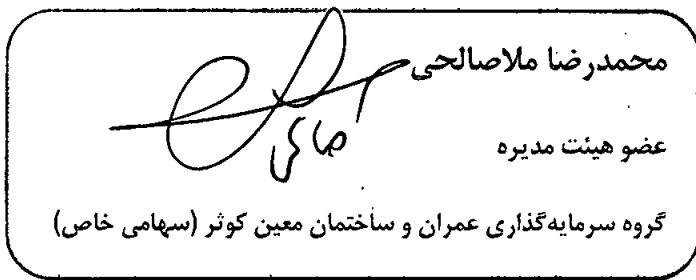 محمدرضا ملاصالحی
عضو هیئت مدیره
گروه سرمایه‌گذاری عمران و ساختمان معین کوثر (سهامی خاص)